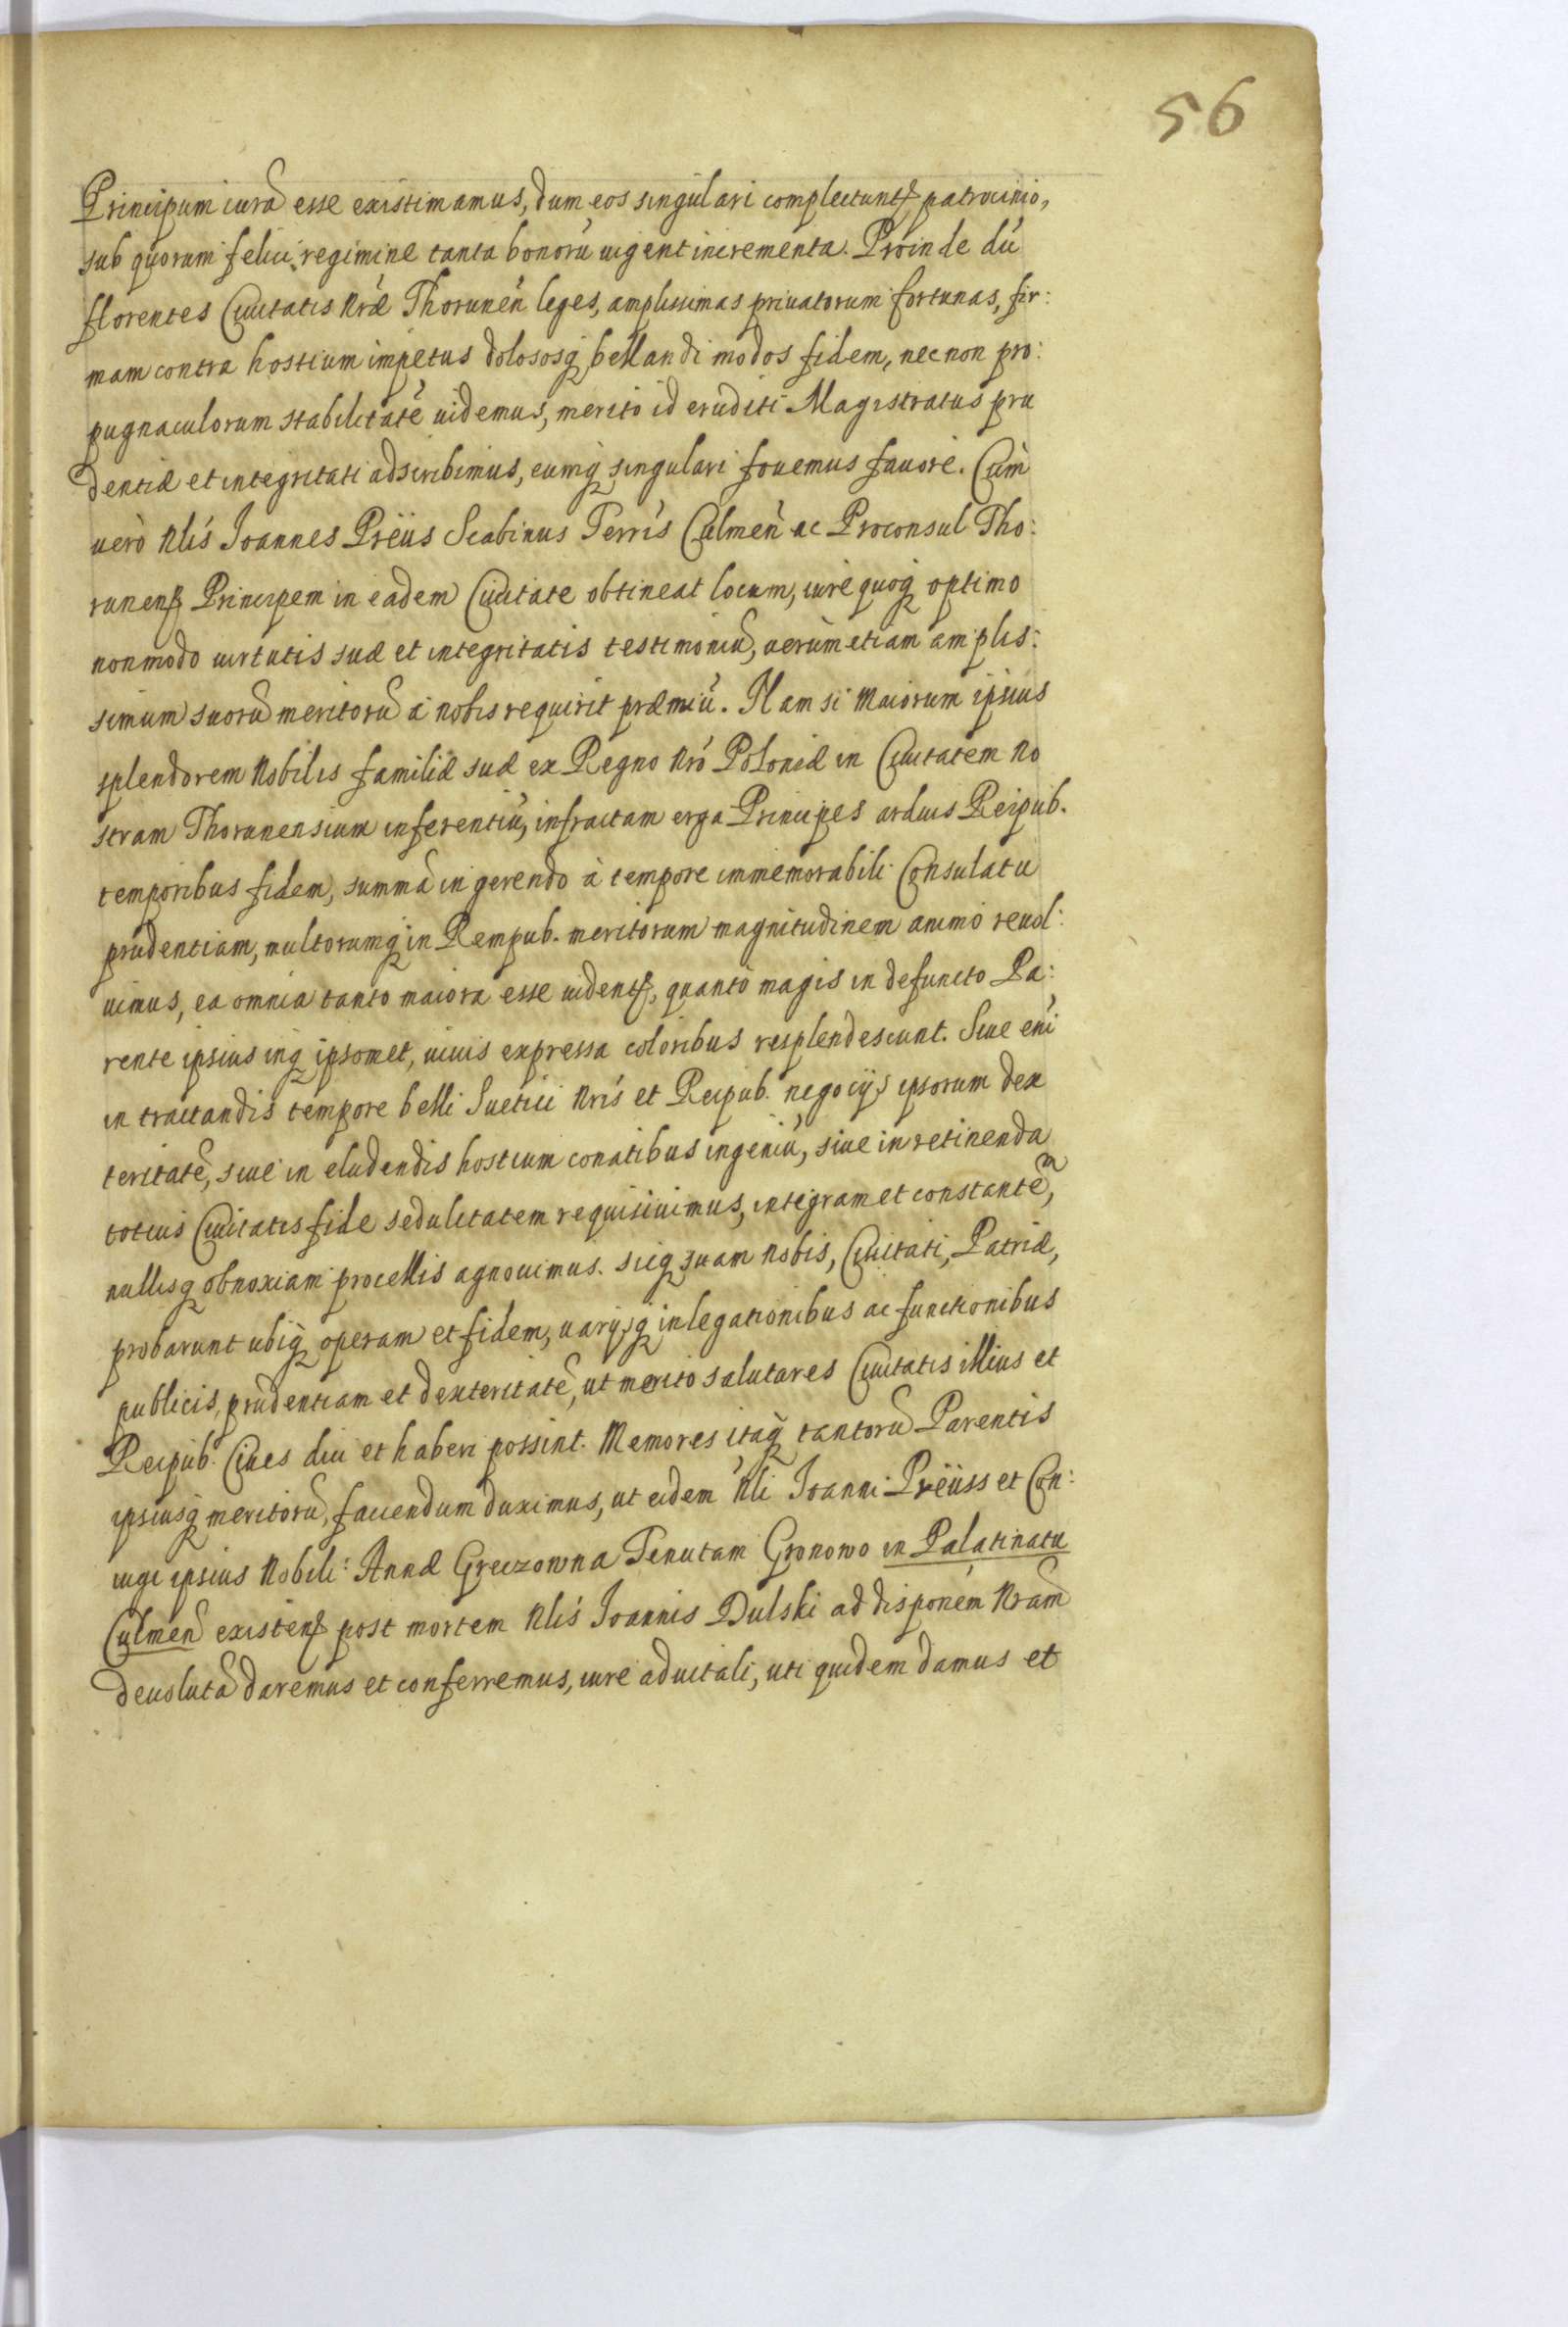 56
Principum iura esse existimamus, dum eos singulari complectuntr patrocinio,
sub quorum felici regimine tanta bonorũ uigent incrementa. Proinde dũ
florentes Ciuitatis nrae Thorunen̄ leges, amplissimas priuatorum fortunas, fir:
mam contra hostium impetus dolososq́ bellandi modos fidem, necnon pro:
pugnaculorum stabilitatē uidemus, merito id eruditi Magistratus pru
dentiæ et integritati adscribimus, eumq́ singulari fouemus fauore. Cum
uerò Nlis Joannes Preüs Scabinus Terris Culmen̄ ac Proconsul Tho:
runens Principem in eadem Ciuitate obtineat locum, iure quoq́ optimo
nonmodo uirtutis suæ et integritatis testimoniũ, uerùm etiam amplis:
simum suorũ meritorũ à nobis requirit præmiũ. Nam si Maiorum ipsius
splendorem Nobilis familiæ suæ ex Regno Nrō Poloniæ in Ciuitatem No
stram Thorunensium inferentiũ, infractam erga Principes arduis Reipub.
temporibus fidem, summã in gerendo à tempore immemorabili Consulatu
prudentiam, multorumq́ in Rempub. meritorum magnitudinem animo reuol:
uimus, ea omnia tanto maiora esse uidentr, quantò magis in defuncto Pa:
rente ipsius inq́ ipsomet, uiuis expressa coloribus resplendescunt. Siue eni
in tractandis tempore belli Suetici Nris et Reipub. negocijs ipsorum dex
teritatē, siue in eludendis hostium conatibus ingeniũ, siue in retinenda
totius Ciuitatis fide sedulitatem requisiuimus, integram et constantēm,
nullisq́ obnoxiam procellis agnouimus. sicq́ suam Nobis, Ciuitati, Patriæ,
probarunt ubiq́ operam et fidem, uarijsq́ in legationibus ac functionibus
publicis, prudentiam et dexteritatē, ut merito salutares Ciuitatis illius et
Reipub. Ciues dici et haberi possint. Memores itaq́ tantorũ Parentis
ipsiusq́ meritorũ, faciendum duximus, ut eidem Nli Joanni Preüss et Con:
iugi ipsius Nobili: Annæ Greczowna Tenutam Gronowo in Palatinatu
Culmen̄ existens post mortem Nlis Joannis Dulski ad disponem̄ Nram
deuolutã daremus et conferremus, iure aduitali, uti quidem damus et